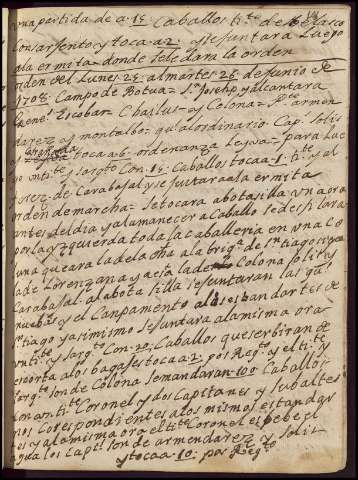 una partida de a 15 Caballos ti.te de Belasco
con sarjento y toca a 2 y se juntara luego
a la ermita donde se le dara la orden
orden del Lunes 25 al martes 26 de Junio de
1708 Campo de Botua = S.n Joseph y alcantara
Escobar = Chaslus = y Colona = armen
darez y montalbo = qu alordinario Cap. Solis
Granada toca a 6 ordenanza Leyva = para
ti.te y sarg.to Con 15 Caballos toca a 1 ti.te y el
de Carabajal y se juntara a la ermita
orden de marcha = se tocara a botasilla una ora
antes del dia y al amanecer a Caballo se desfilara
por la yzquierda toda la caballeria en una Co
luna que ara la de la cha a la brig.a de S.ntiago sigue
la de Lorenzana y acia la de Colona solis y
Carabajal a la bota silla se juntaran las gu.as
nuebas y el Canpamento a los estandartes de
S.ntiago y asimismo se juntara a la misma ora
un ti.te y Sarg.to Con 20 Caballos que serbiran de
escorta a los bagajes toca a 2 por Reg.to y el ti.te y
sarg.to son de Colona se mandaran 100 Caballos
con un ti.te Coronel y dos Capitanes y subalter
nos Corespondientes a los mismos estandar
tes y a la misma ora el ti.te Coronel es
gua los Cap.es son de armendarez y solis
y toca a 10 por Reg.to